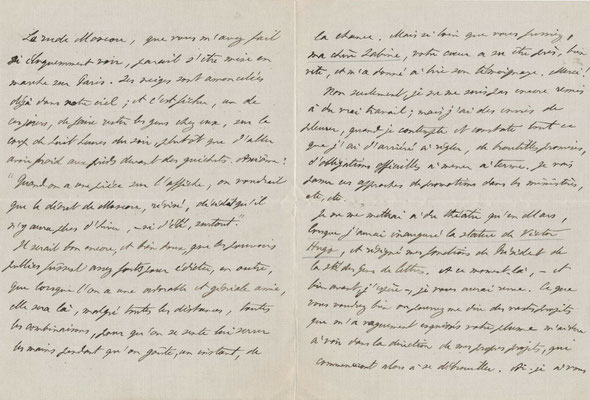 La rude Moscou, que vous m'avez fait
si éloquemment voir, paraît s'être mise en
marche sur Paris. Ses neiges sont amoncelées
déjà dans notre ciel ; et c'est fichu, un de
ces jours, de faire rester les gens chez eux, sur le
coup de huit heures du soir, plutôt que d'aller
avoir froid aux pieds devant des guichets.
"Quand on a une pièce sur l'affiche, on voudrait
que le décret de Moscou, révisé, décidât qu'il
n'y aura plus d'hiver, – ni d'été, surtout."
Il serait bon encore, et bien doux, que les pouvoirs
publics fussent assez forts pour édicter, en outre,
que lorsque l'on a une adorable et géniale amie,
elle sera là, malgré toutes les distances, toutes
les combinaisons, pour qu'on se sente lui serrer
les mains pendant qu'on goûte, un instant, de
la chance. Mais si loin que vous fussiez,
ma chère Sabine, votre cœur a su être près, bien
vite, et m'a donné à lire son témoignage. Merci !
Non seulement, je ne me suis pas encore remis
à du vrai travail ; mais j'ai des envies de
pleurer, quand je contemple et constate tout ce
que j'ai d'arriéré à régler, de broutilles promises,
d'obligations officielles à mener à terme. Je vous
passe ces approches de promotions dans les ministères,
etc, etc.
Je ne me mettrai à du théâtre qu'en Mars,
lorsque j'aurai inauguré la statue de Victor
Hugo, et résigné mes fonctions de Président de
la Sté des Gens de lettres. À ce moment là, – et
bien avant, j'espère, je vous aurai revue. Ce que
vous voudrez bien ou pourrez me dire des vastes projets
que m'a vaguement esquissés votre plume m'aidera
à voir dans la direction de mes propres projets, qui
commencent alors à se débrouiller. Ai-je à vous